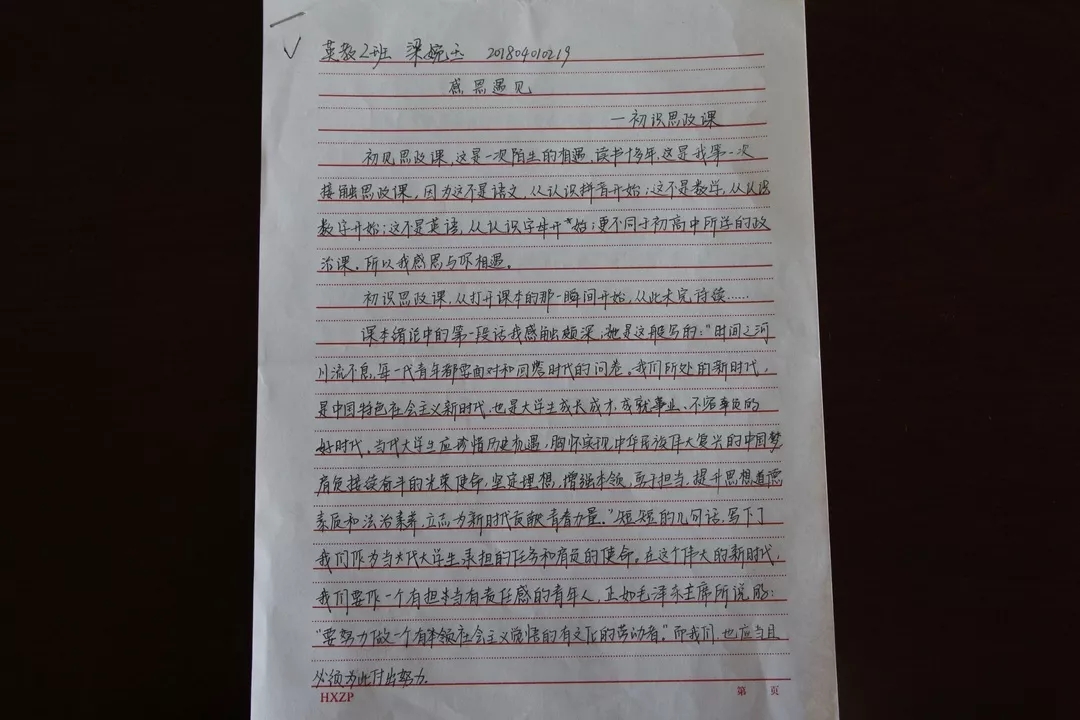 英教2班 梁婉玉 201804010219
感恩遇见
—初识思政课
初见思政课,这是一次陌生的相遇,读书十多年,这是我第一次
接触思政课,因为这不是语文,从认识拼音开始;这不是数学,从认识
数字开始;这不是英语,从认识字母开始;更不同于初高中所学的政
治课。所以我感恩与你相遇。
初识思政课,从打开课本的那一瞬间开始,从此未完待续……
课本绪论中的第一段话我感触颇深,她是这般写的:“时间之河
川流不息,每一代青年都要面对和回答时代的问卷。我们所处的新时代,
是中国特色社会主义新时代,也是大学生成长成才,成就事业、不容辜负的
好时代。当代大学生应珍惜历史机遇,胸怀实现中华民族伟大复兴的中国梦
肩负接续奋斗的光荣使命,坚定理想,增强本领,勇于担当,提升思想道德
素质和法治素养,立志为新时代贡献青春力量。”短短的几句话,写下了
我们作为当代大学生承担的任务和肩负的使命。在这个伟大的新时代,
我们要作一个有担当有责任感的青年人,正如毛泽东主席所说的:
“要努力做一个有本领在社会主义觉悟的有文化的劳动者。”而我们,也应当且
必须为此付出努力。
HXZP
第 页